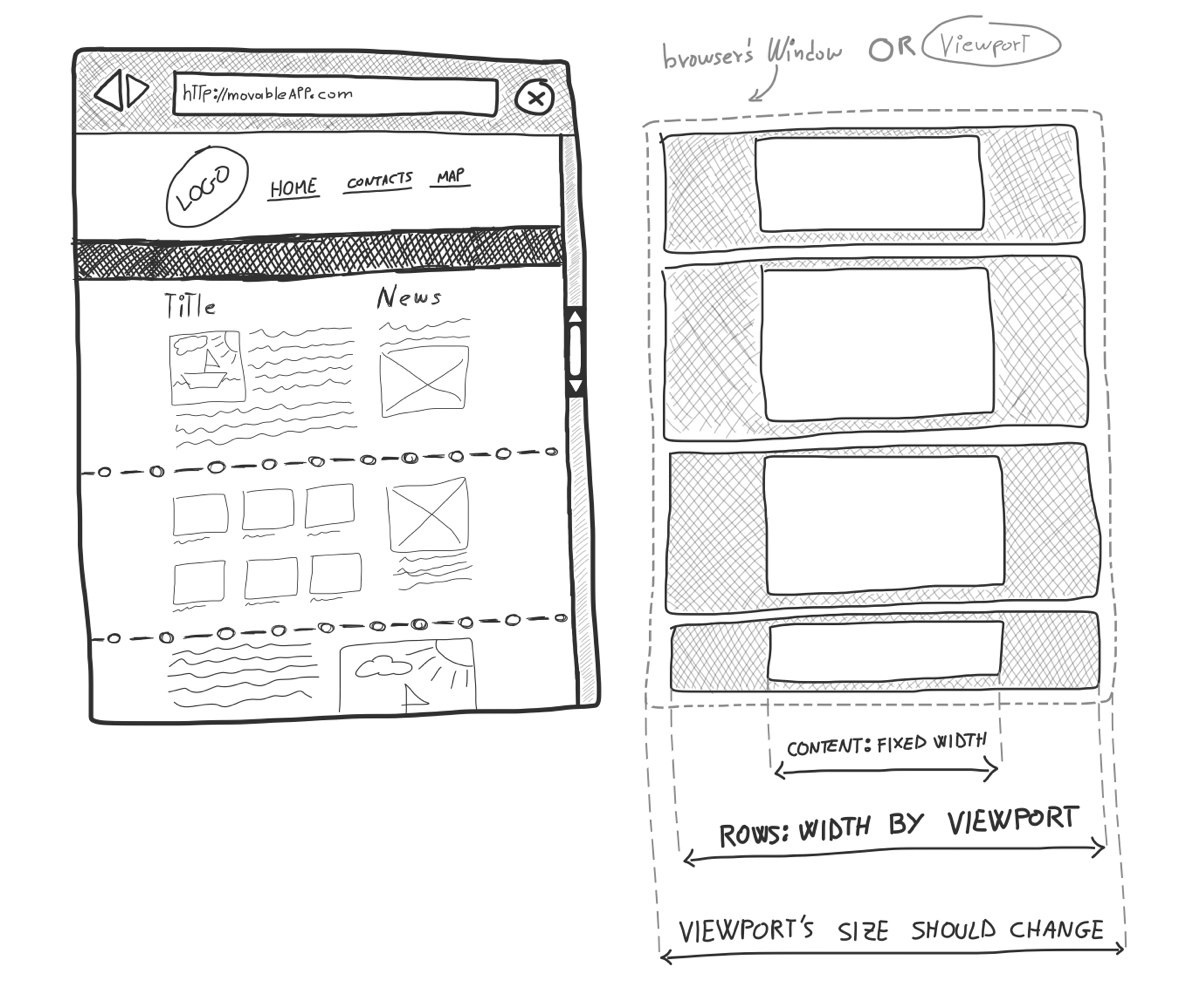 http://movableAPP.com
LOGO
HOME CONTACTS MAP
Title News
browser's Window OR Viewport
CONTENT: FIXED WIDTH
ROWS: WIDTH BY VIEWPORT
VIEWPORT'S SIZE SHOULD CHANGE